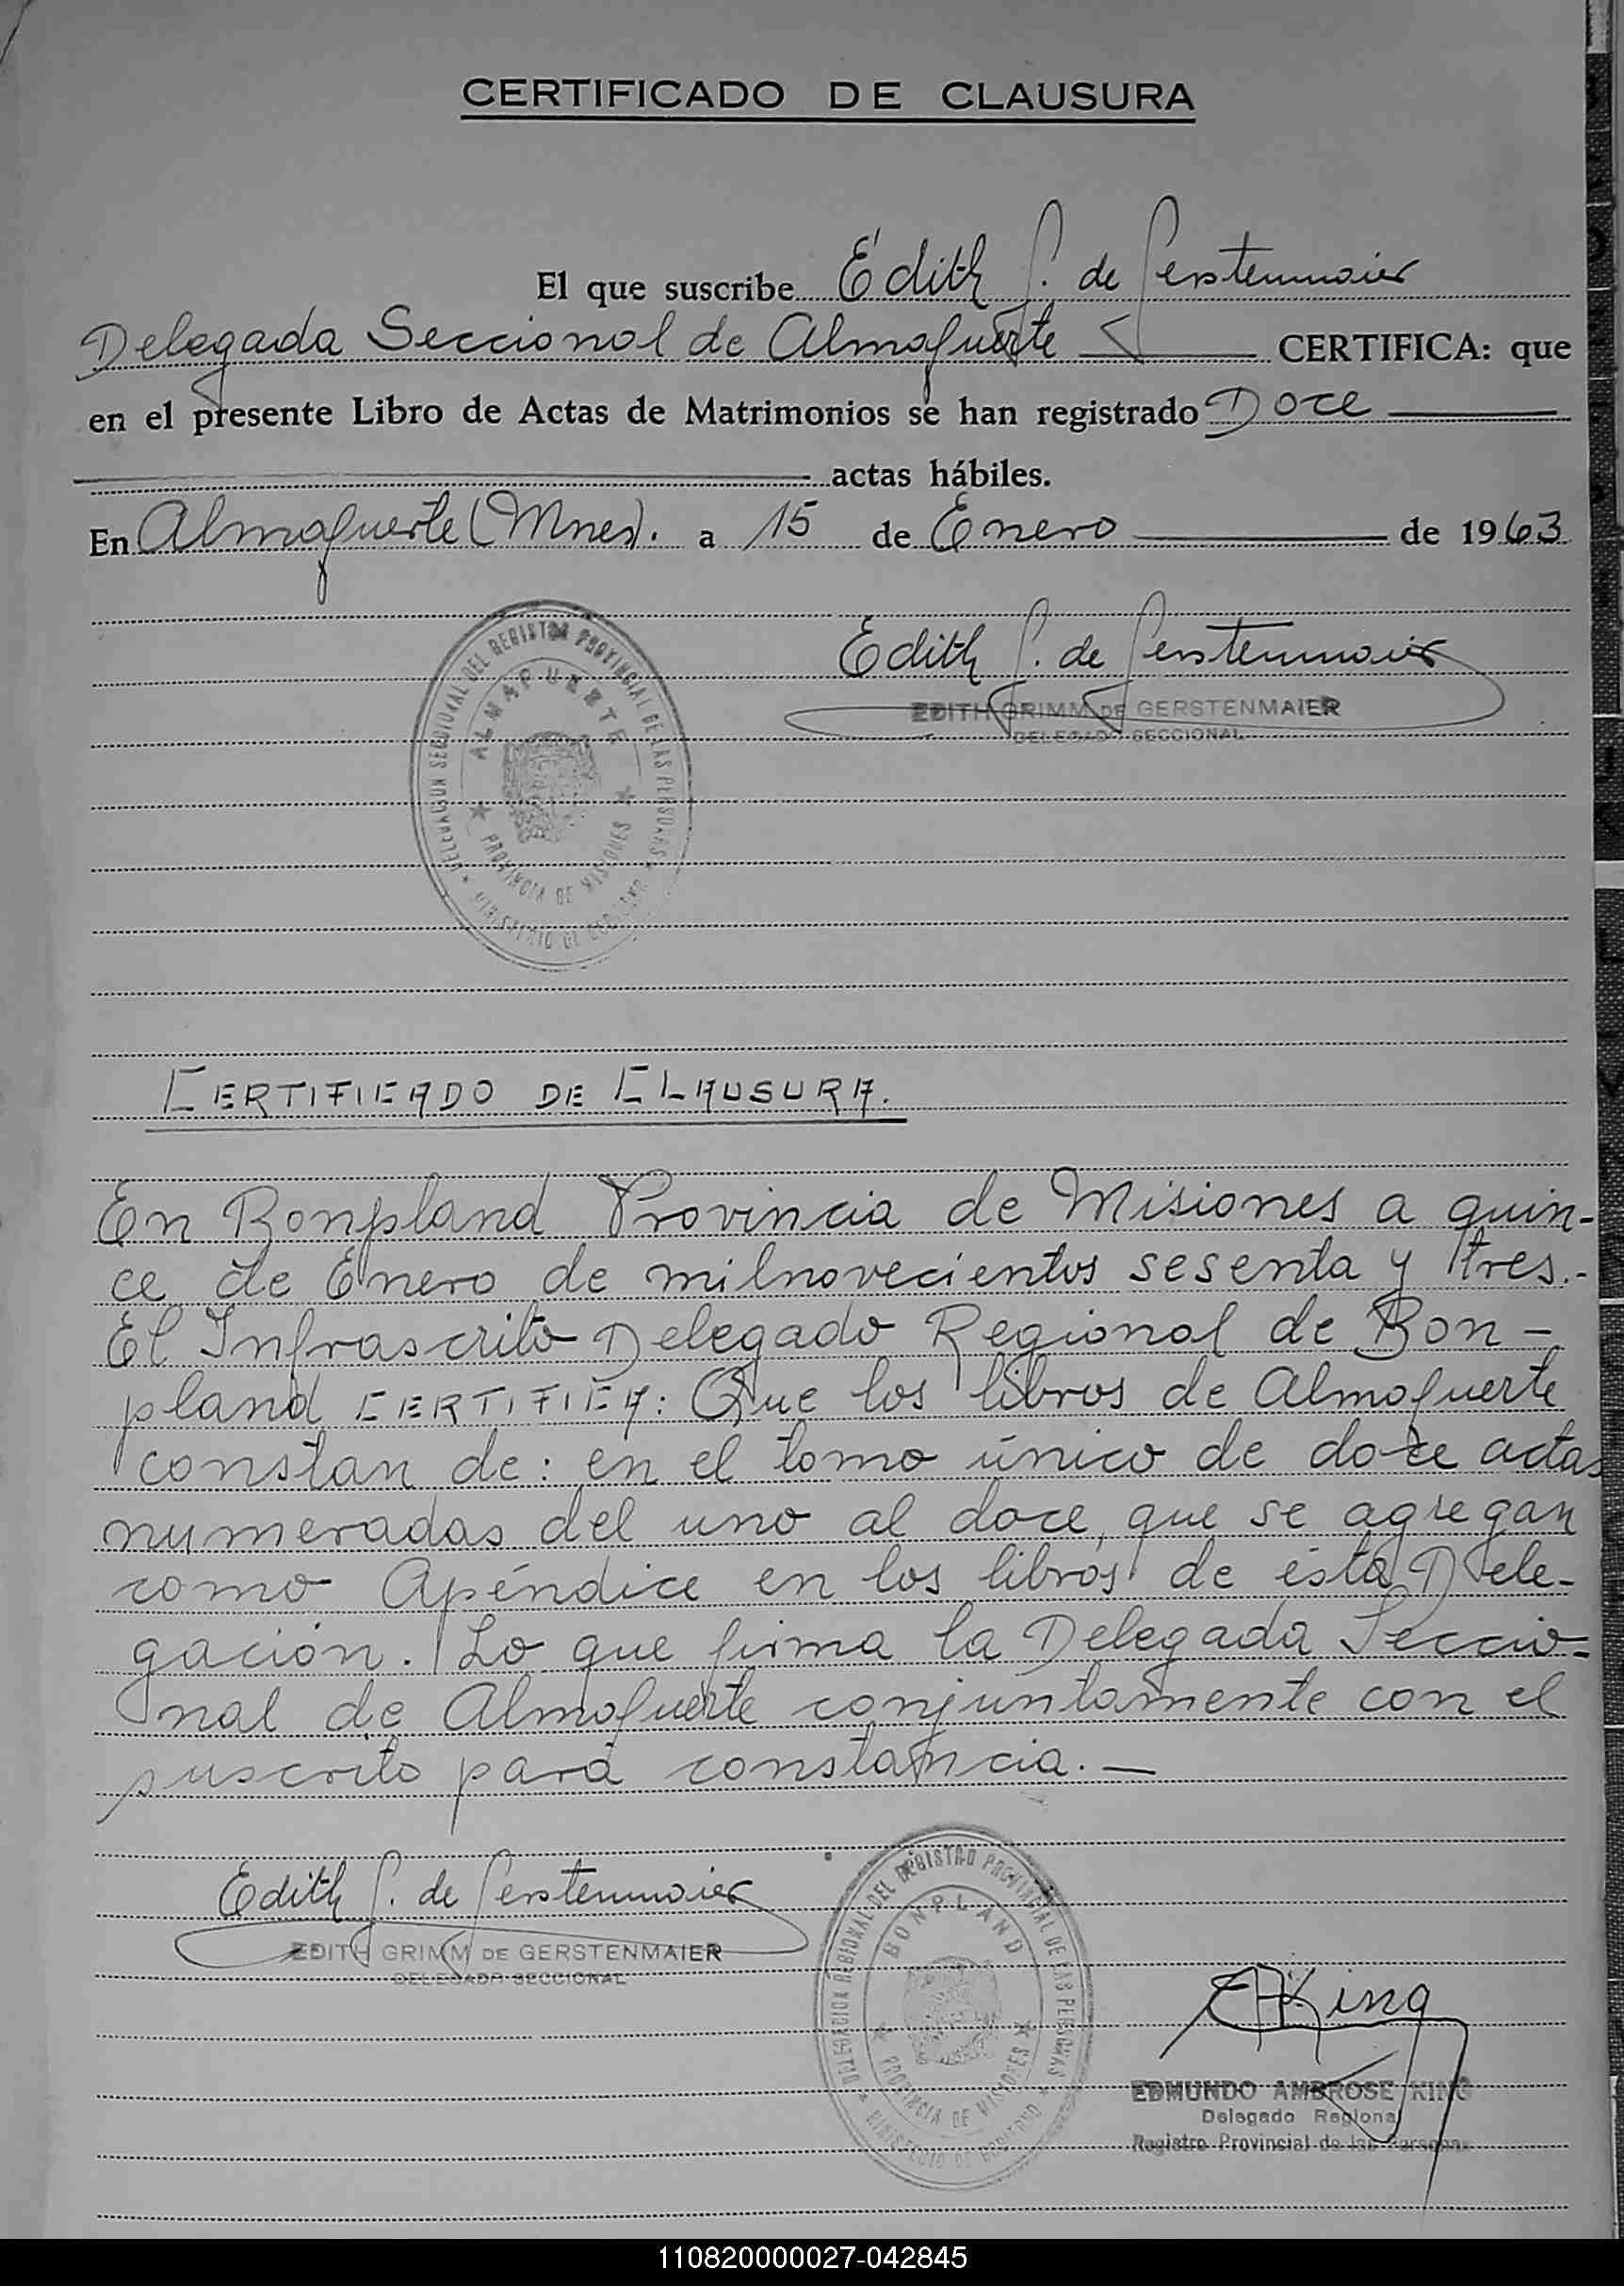 CERTIFICADO DE CLAUSURA
El que suscribe Edith G. de Gerstenmaier
Delegada Seccional de Almafuerte CERTIFICA: que
en el presente Libro de Actas de Matrimonios se han registrado Doce
actas hábiles.
En Almafuerte (Mnes). a 15 de Enero de 1963
Edith G. de Gerstenmaier
EDITH GRIMM DE GERSTENMAIER
DELEGADO SECCIONAL
DELEGACION SECCIONAL DEL REGISTRO PROVINCIAL DE LAS PERSONAS
ALMAFUERTE
PROVINCIA DE MISIONES
MINISTERIO DE GOBIERNO
CERTIFICADO DE CLAUSURA.
En Bonpland Provincia de Misiones a quin-
ce de Enero de milnovecientos sesenta y tres.-
El Infrascrito Delegado Regional de Bon-
pland CERTIFICA: Que los libros de Almafuerte
constan de: en el tomo único de doce actas
numeradas del uno al doce, que se agregan
como Apéndice en los libros de ésta Dele-
gación. Lo que firma la Delegada Seccio=
nal de Almafuerte conjuntamente con el
suscrito para constancia.—
Edith G. de Gerstenmaier
EDITH GRIMM DE GERSTENMAIER
DELEGADO SECCIONAL
DELEGACION REGIONAL DEL REGISTRO PROVINCIAL DE LAS PERSONAS
BONPLAND
PROVINCIA DE MISIONES
MINISTERIO DE GOBIERNO
EAKing
EDMUNDO AMBROSE KING
Delegado Regional
Registro Provincial de las Personas
110820000027-042845